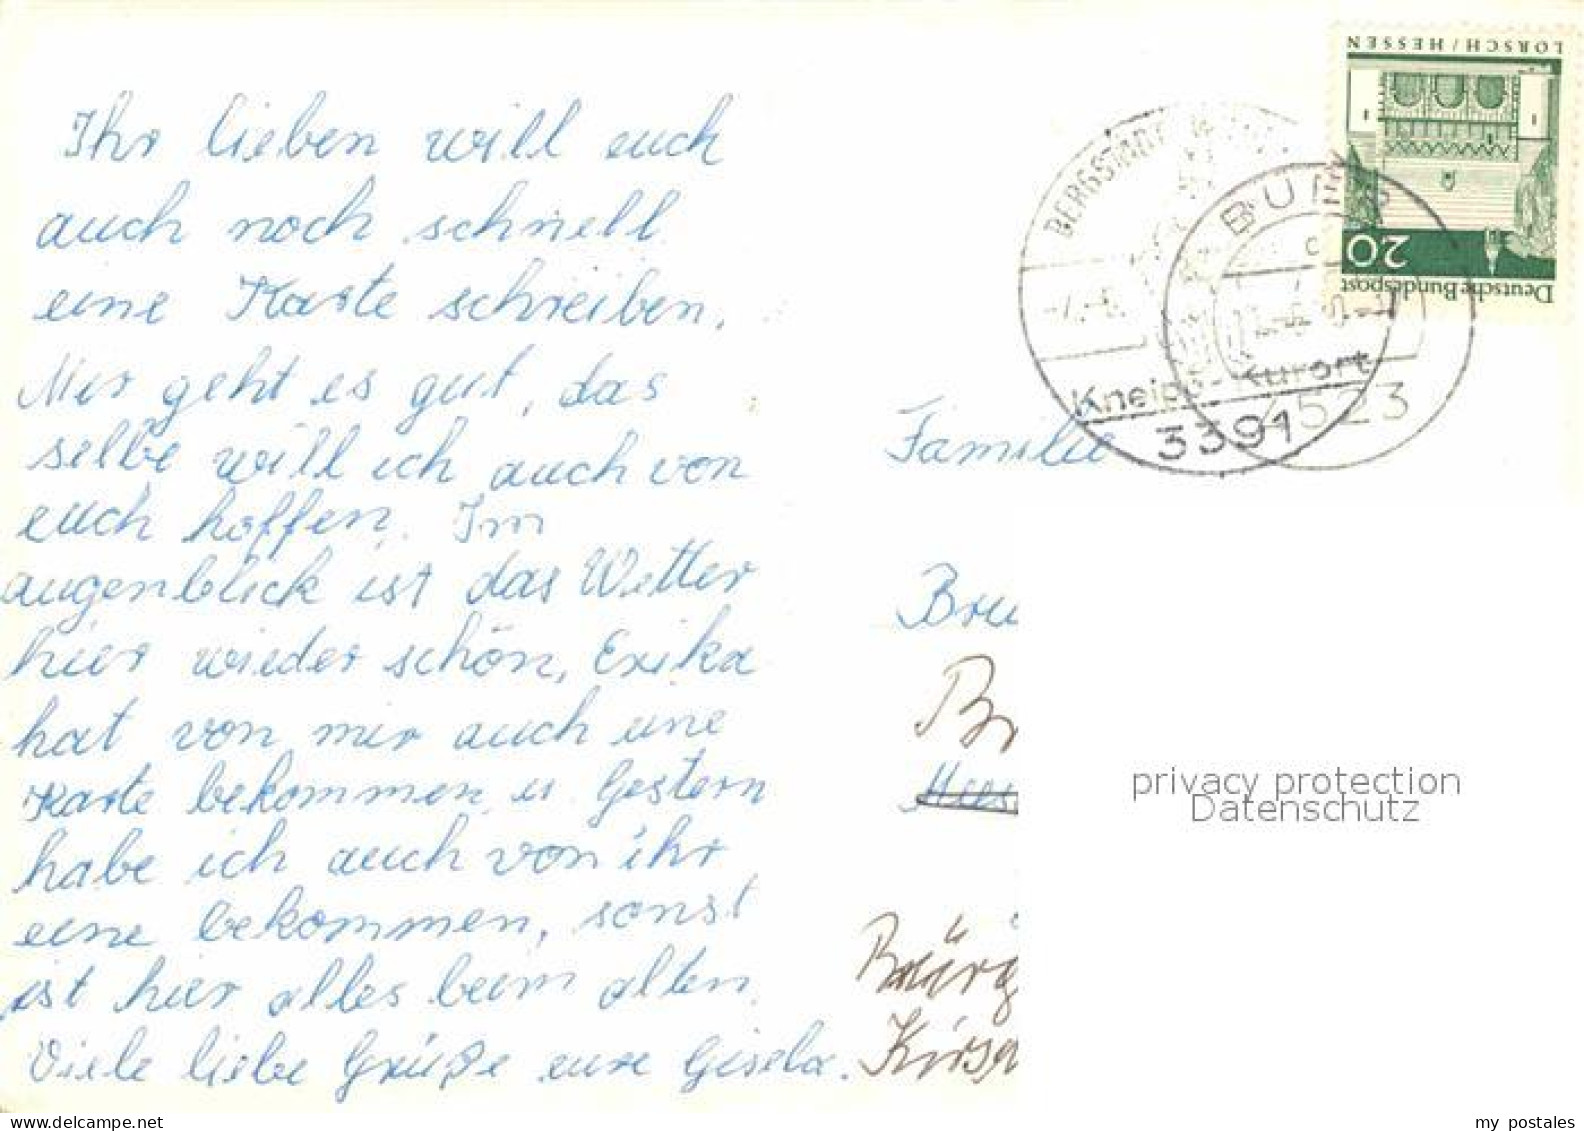 Ihr lieben will euch
auch noch schnell
eine Karte schreiben.
Mir geht es gut, das
selbe will ich auch von
euch hoffen. Im
augenblick ist das Wetter
hier wieder schön, Erika
hat von mir auch eine
Karte bekommen u. Gestern
habe ich auch von ihr
eine bekommen, sonst
ist hier alles beim alten.
Viele liebe Grüße eure Gisela.
LORSCH/HESSEN
20
Deutsche Bundespost
BERGSTADT
Kneipp-Kurort
3391
4523
Familie
privacy protection
Datenschutz
my postales